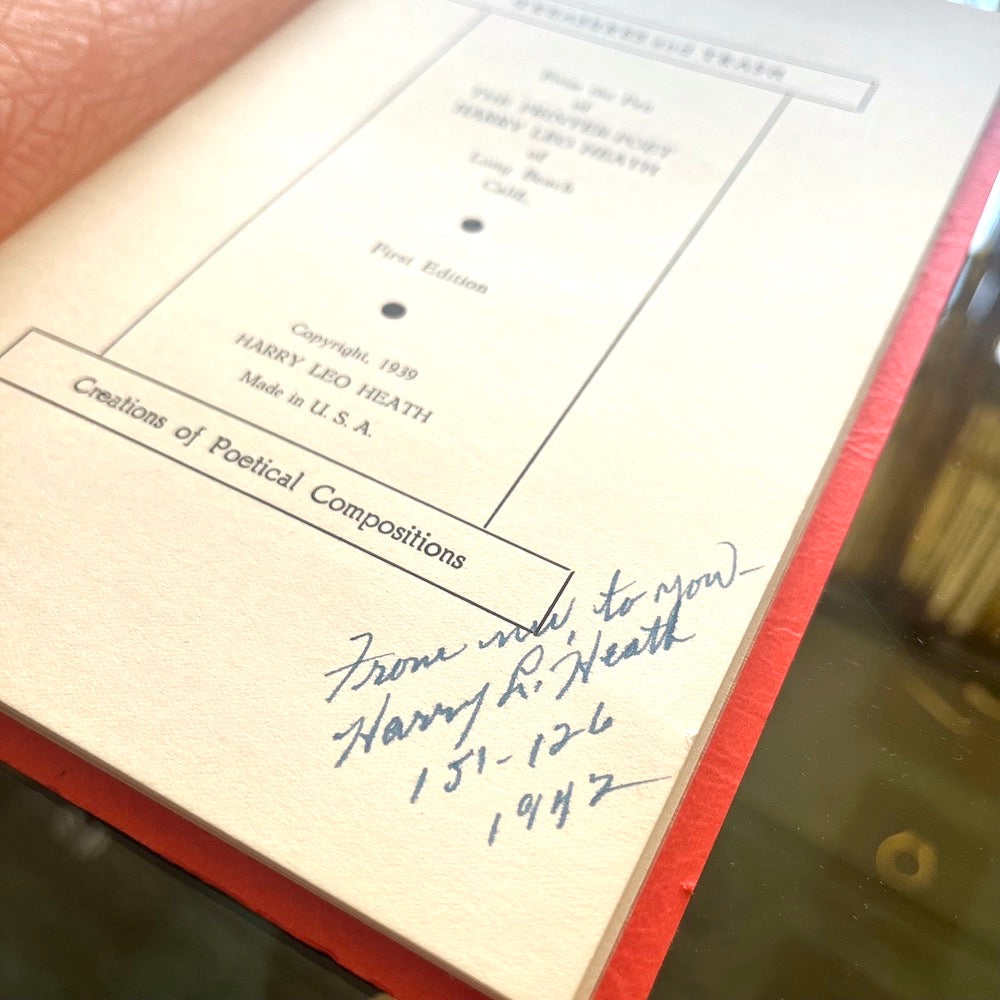 From the Pen
of
THE PRINTER POET
HARRY LEO HEATH
of
Long Beach
Calif.
First Edition
Copyright, 1939
HARRY LEO HEATH
Made in U. S. A.
Creations of Poetical Compositions
From me, to you—
Harry L. Heath
151-126
1942